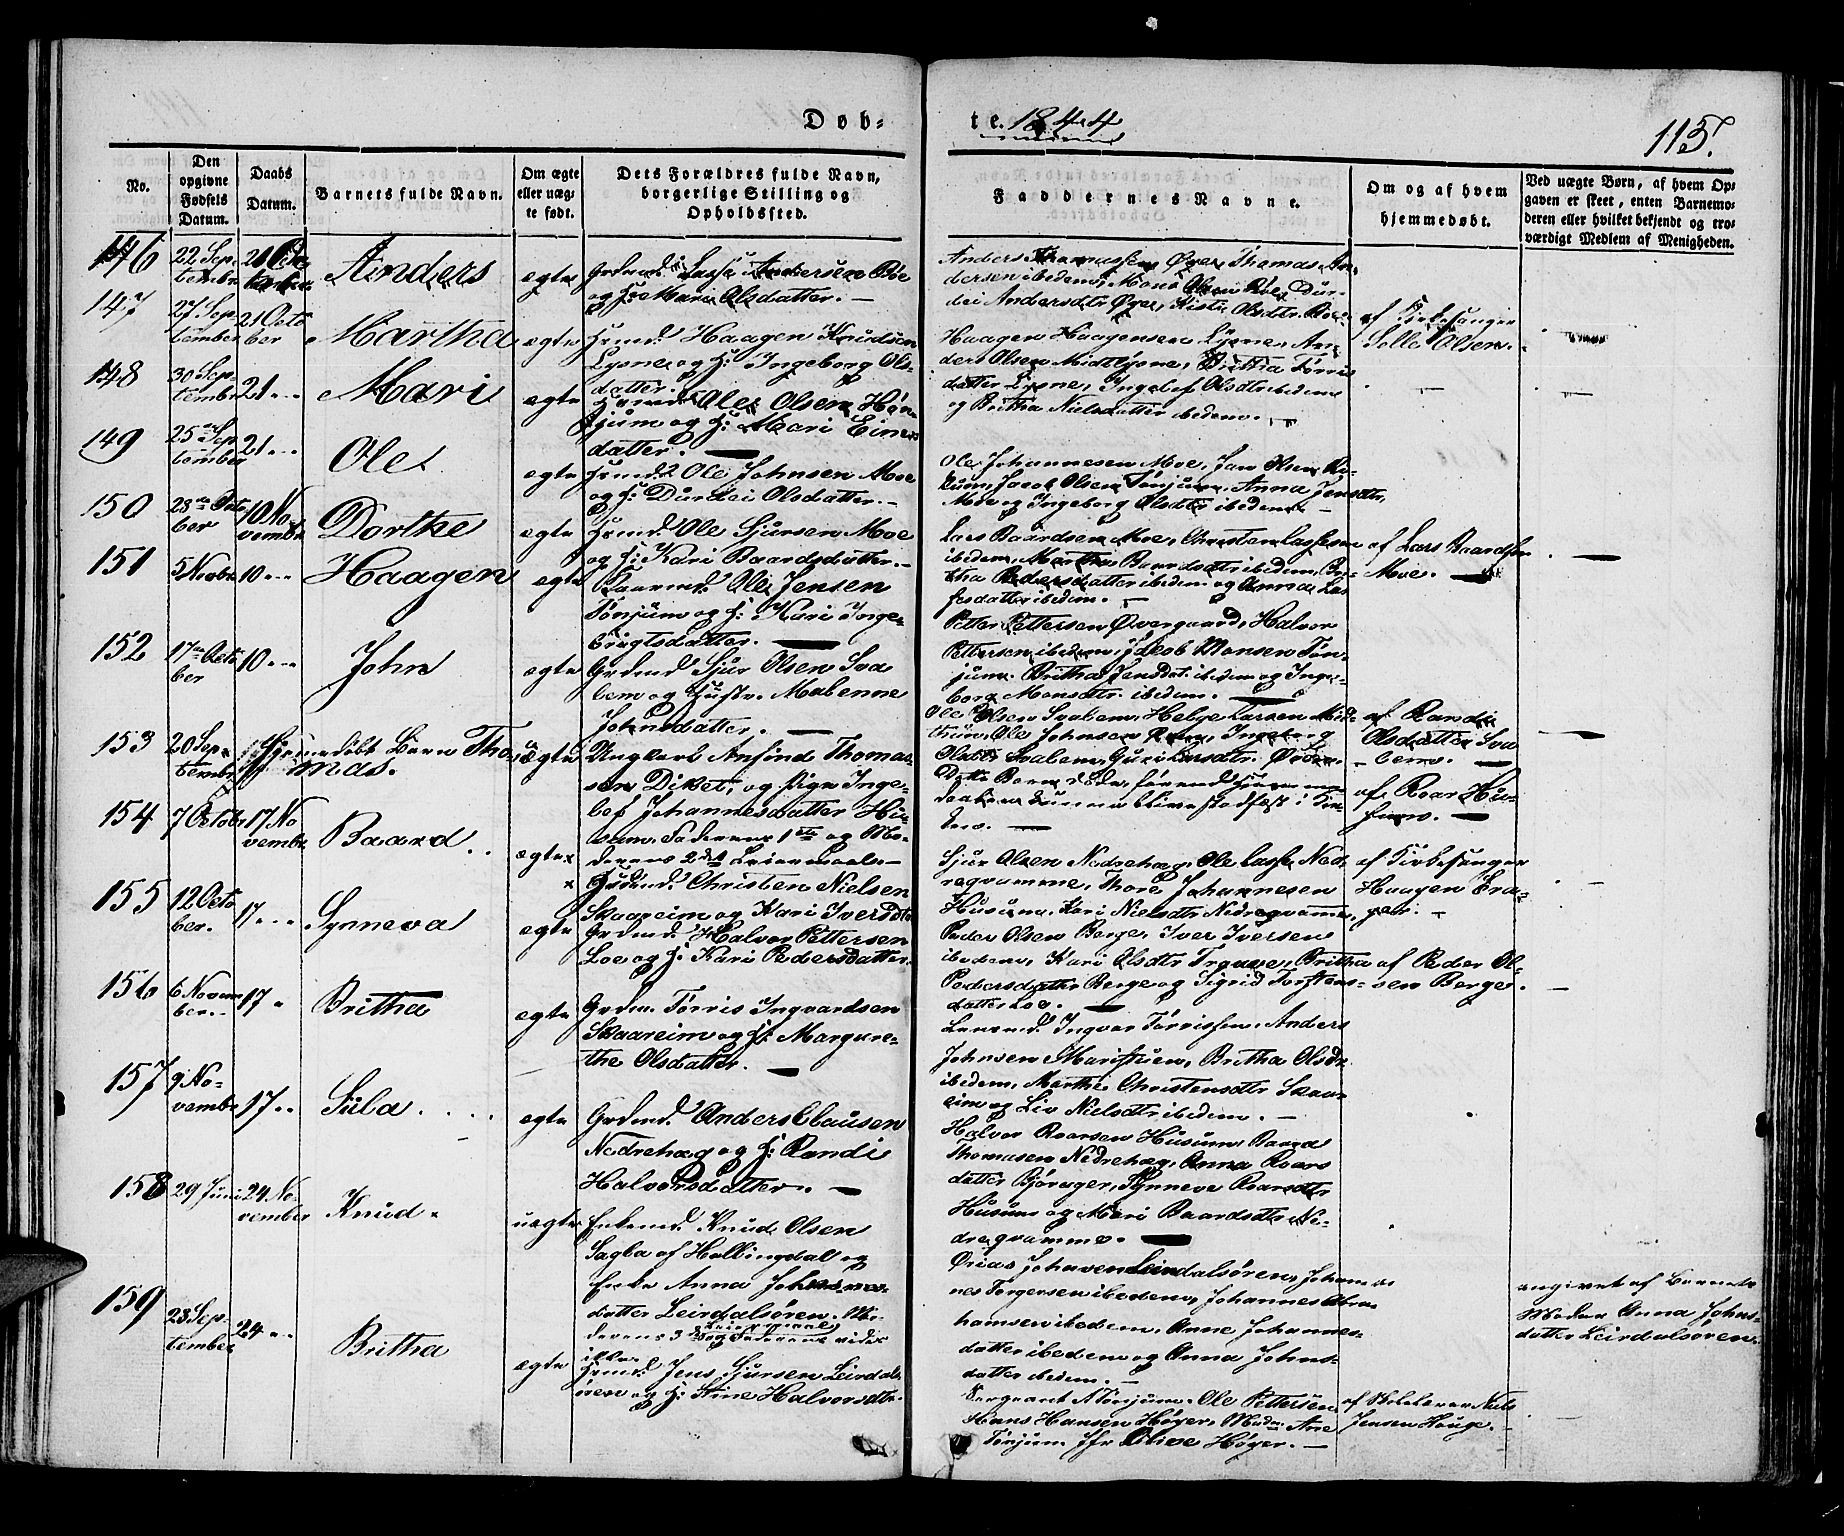 Døb- te. 1844
115.
No.
Den opgivne Fødsels Datum.
Daabs Datum.
Barnets fulde Navn.
Om ægte eller uægte født.
Dets Forældres fulde Navn, borgerlige Stilling og Opholdssted.
Faddernes Navne.
Om og af hvem hjemmedøbt.
Ved uægte Børn, af hvem Opgaven er skeet, enten Barnemoderen eller hvilket bekjendt og troværdigt Medlem af Menigheden.
146
22 Sep-
tembr
Anders
ægte
Grdmd. Lasse Andersen Bøe
og H. Mari Olsdatter. —
Anders Thomassen Øye, Thomas An-
dersen ibedem, Mons Olsen Bøe, Dur-
dei Andersdtr Øye, Kisti Olsdtr Bøe
147
27 Sep-
tember
21 Octo
ber
Martha
ægte
Huusmd. Haagen Knudsen
Lysne og H. Ingeborg Ols-
datter.
Haagen Haagensen Lysne, An-
ders Olsen Midtlysne, Britha Tørris
datter Lysne, Ingelef Olsdtr ibedem
og Britha Nielsdatter ibedem. —
af Kirkesanger
Solle Olsen.
148
30 Sep-
tember
21 - -
Mari
ægte
Huusmd. Ole Olsen Høn-
jum og H: Mari Einers
datter. —
149
25 Sep
tember
21 - -
Ole
ægte
Huusmd. Ole Johnsen Moe
og H: Durdei Olsdatter. —
Ole Johannesen Moe, Jan Olsen Ro-
kum, Jacob Olsen Tønjum, Anna Jensdtr
Moe og Ingeborg Olsdtr ibedem —
150
28 Octo
ber
10 No
vembr
Dorthe
ægte
Huusmd Ole Sjursen Moe
og H: Kari Baardsdatter. —
Lars Baardsen Moe, Christen Lassesen
ibedem, Martha Baardsdtr ibedem, Bri-
tha Pedersdatter ibedem og Anna Las-
sesdatter ibedem. —
af Lars Baardsen
Moe. —
151
5 Novbr
10 - -
Haagen
ægte
Baarmd. Ole Jensen
Tønjum og H: Kari Inge-
brigtsdatter. —
Petter Pettersen Øvergaard, Halvor
Pettersen ibedem, Jacob Monsen Tøn-
jum. Britha Jensdat. ibedem og Inge-
borg Monsdtr. ibedem. —
152
17 Octo
ber
10 - -
John
ægte
Grdmd Sjur Olsen Sva
lem og Hustr. Malenne
Johnsdatter. —
Ole Olsen Svalem, Helge Larsen Mid-
thun, Ole Johnsen, Ingeborg
Olsdtr Svalem, Guri Larsdtr.
af Randi
Olsdatter Sva
lem. —
153
20 Sep-
tembr
Hjemmedøbt Barn Tho-
mas.
uægte
Ungkarl Anfind Thomas-
sen Diket, og Pige Inge-
lef Johannesdatter Hu-
sum. Faderens 1ste og Mo-
derens 2det Leiermaal. —
Dette Barn døde, førend Hjemme-
daaben kunne blive stadfæst i Kir-
ken. —
af Roar Hu-
sum. —
154
7 Octobr
17 No
vembr
Baard. .
ægte
Grdmd. Christen Nielsen
Skaareim og Kari Iversdtr
Sjur Olsen Nedrehæg, Ole Lasse Ned-
reqvamme, Thore Johannesen
Husum, Kari Nielsdtr Nedreqvamme,
af Kirkesanger
Haagen Era-
ger. —
155
12 Octo
ber.
17 - -
Synneva
ægte
Grdmd. Halvor Pettersen
Loe og H. Kari Pedersdatter.
Peder Olsen Berge, Iver Iversen
ibedem, Kari Olsdtr Traue, Britha
Pedersdatter Berge og Sigrid Torstens-
datter Loe. —
af Peder Ol-
sen Berge.
156
6 Novem
ber. -
17 -
Britha
ægte
Grdm. Tørris Ingvardsen
Skaareim og H. Margure-
the Olsdatter. —
Lensmd. Ingvar Tørrissen, Anders
Johnsen Maristuen, Britha Olsdtr
ibedem, Marthe Christensdtr Skaar-
eim og Liv Nielsdtr ibedem. —
157
9 No-
vembr
17 - -
Sula. . . .
ægte
Grdmd. Anders Clausen
Nedrehæg og H: Randi
Halvorsdatter. —
Halvor Roarsen Husum, Baard
Thomasen Nedrehæg, Anna Roars
datter Bjøraker, Synneve Roarsdtr
Husum og Mari Baardsdtr Ne-
dreqvamme. —
158
29 Juni
24 No-
vember
Knud.
uægte
Enkemd. Knud Olsen
Sagba af Hallingdal og
Enke Anna Johns-
datter Leirdalsøren. Mo-
derens 3die Leiermaal
og Faderens vides
ikke.
Johannes
Torgersen ibedem, Johannes Abra
hamsen ibedem. Anne Johannes-
datter ibedem og Anna Johns-
datter ibedem. —
angivet af Barnets
Moder Anna Johns-
datter Leirdalsøren.
159
23 Sep-
tember
24 - -
Britha
ægte
Huusmd. Jens Sjursen Leirdals
øren og H. Stine Halvorsdtr.
Sergeant A Tønjum. Ole Pettersen
Hans Hansen Høyer, Madm. Ane
Tønjum. Jfr Olive Høyer. —
af Skolelærer Niels
Jensen Houge. —